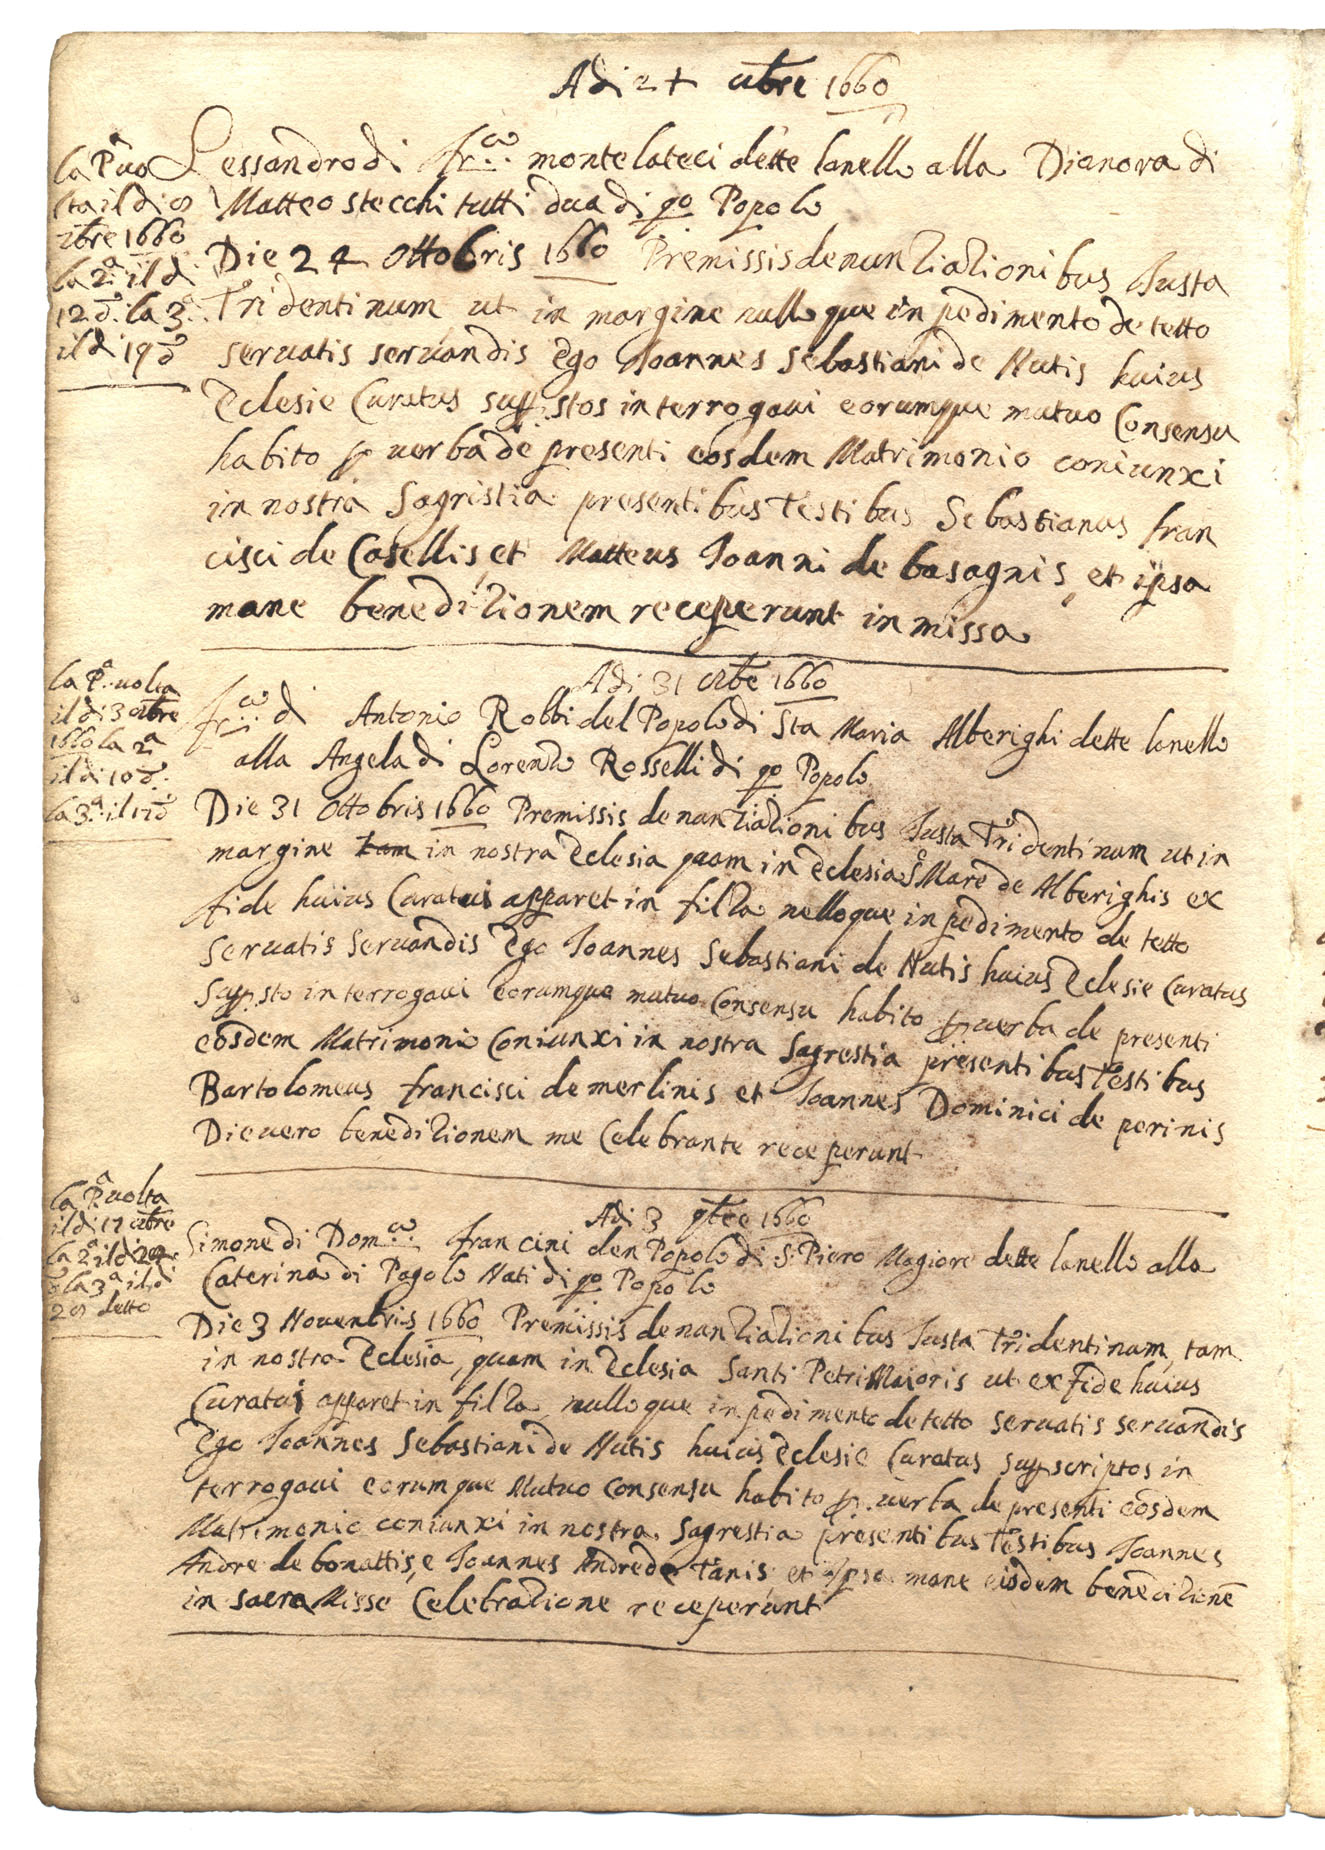 Adi 24 8bre 1660
la Pa uo
lta il di
8bre 1660
la 2a il di
12 do. la 3a
il di 19 do
Lessandro di frco montelateci dette lanello alla Dianora di
Matteo stecchi tutti dua di qo Popolo
Die 24 ottobris 1660 Premissis denuntiationibus Iusta
Tridentinum ut in margine nulloque inpedimento detetto
servatis servandis Ego Ioannes Sebastiani de Nutis huius
Eclesie Curatus supstos interrogavi eorumque mutuo Consensu
habito p verba de presenti eosdem Matrimonio coniunxi
in nostra Sagristia presentibus Testibus Sebastianus fran
cisci de Casellis et Matteus Ioanni de basagnis, et ipsa
mane beneditionem receperunt in missa
la Pa uolta
il di 3 8bre
1660 la 2a
il di 10 do.
la 3a il 17 do
Adi 31 8bre 1660
frco di Antonio Robbi del Popolo di Sta Maria Alberighi dette lanello
alla Angela di Lorenzo Rosselli di qo Popolo
Die 31 ottobris 1660 Premissis denuntiationibus Iusta Tridentinum ut in
margine tam in nostra Eclesia quam in Eclesia S Mare de Alberighis ex
fide huius Curatui apparet in filza nelloque inpedimento de tetto
servatis servandis Ego Ioannes Sebastiani de Nutis huius Eclesie Curatus
supsto interrogavi eorumque mutuo Consensu habito p verba de presenti
eosdem Matrimonio Coniunxi in nostra Sagrestia presentibus Testibus
Bartolomeus francisci de merlinis et Ioannes Dominici de perinis
Die uero beneditionem me Celebrante receperunt
la Pa uolta
il di 17 8bre
la 2a il di 24
do la 3a il di
28 detto
Adi 3 9bre 1660
Simone di Domco francini den Popolo di S. Piero Magiore dette lanello alla
Caterina di Pagolo Nati di qo Popolo
Die 3 Novenbris 1660 Premissis denuntiationibus Iusta Tridentinum, tam
in nostra Eclesia, quam in Eclesia Santi Petri Maioris ut ex fide huius
Curatui apparet in filza nulloque inpedimento detetto servatis servandis
Ego Ioannes Sebastiani de Nutis huius Eclesie Curatus suppscriptos in
terrogavi eorumque Mutuo Consensu habito p. uerba de presenti eosdem
Matrimonio coniunxi in nostra sagrestia presentibus Testibus Ioannes
Andre de bonattis, e Ioannes Andrede Tanis et Ipsa mane eisdem benecitione
in sacra Misse Celebratione receperunt